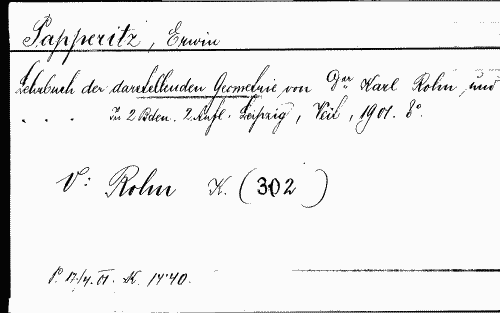 Papperitz, Erwin
Lehrbuch der darstellenden Geometrie von Dr. Karl Rohn, und
. . . . In 2 Bden. 2. Aufl. Leipzig, Veit, 1901. 8°.
V: Rohn K. (302)
K. 14·40.